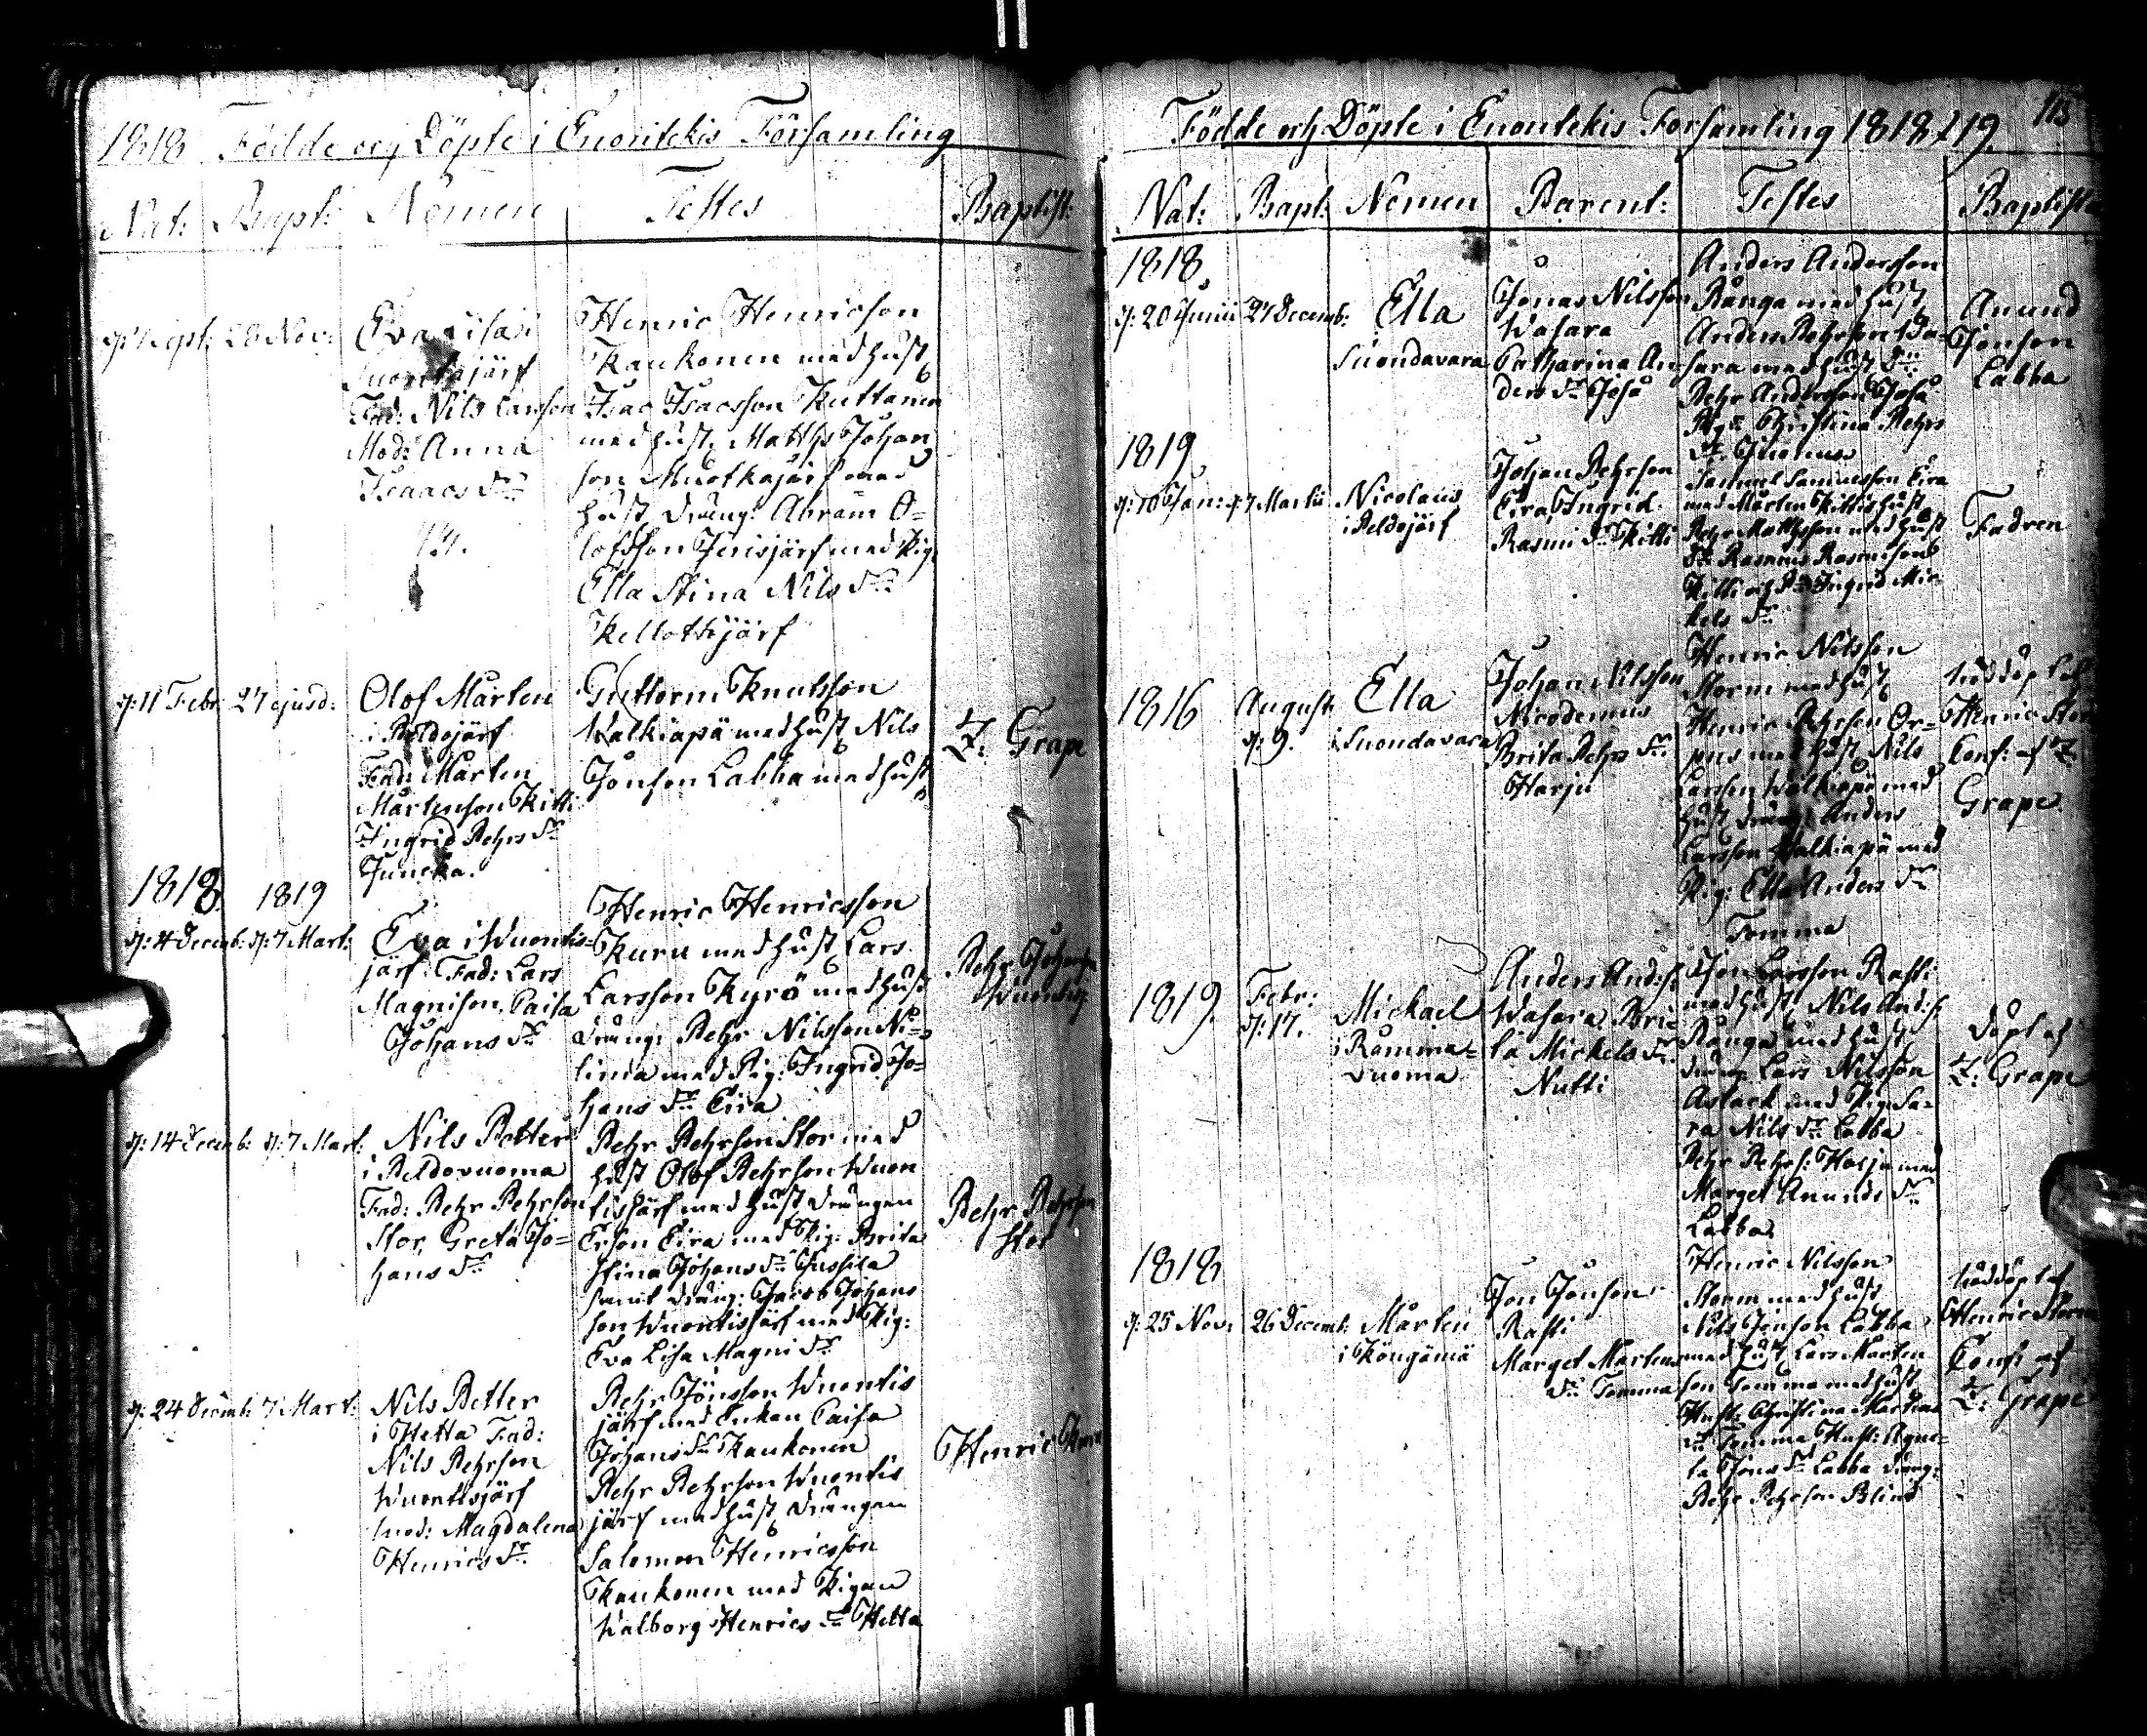 1818 Födde och Döpte i Enontekis Församling
Nat: Bapt: Nomen Testes Baptist:
28 Nov: Eva Lisa i
järf
Fad: Nils Larsson
Mod: Anna
Isaacs Dr
Henric Henricson
Kaukonen med hust
Isac Isacsson Kuttanen
med hust. Matths Johan
son Muotkajärf med
hust dräng: Abram O-
lofsson Jerisjärf med Pig:
Ella Stina Nils Dr
Kellottijärf
d: 11 Febr. 27 ejusd: Olof Mårten
i Peldojärf
Fad: Mårten
Mårtenson Kitti
Ingrid Pehrs Dr
Juncka.
Guttorm Knutsson
Walkiapä med hust Nils
Jonson Labba med hust
Z: Grape
1818 1819
d: 4 Decemb: d: 7 Mart: Eva i Wuontis-
järf. Fad: Lars
Magnison, Caisa
Johans Dr
Henric Henricsson
Kuru med hust Lars
Larsson Kyrö med hust
dräng: Pehr Nilsson Ni-
lima med Pig: Ingrid Jo-
hans Dr Eira
Pehr
d: 14 Decemb: d: 7 Mart: Nils Petter
i Peldovuoma
Fad: Pehr Pehrson
Stor, Greta Jo-
hans Dr
Pehr Pehrson Stor med
hust Olof Pehrson Wuon
tisjärf med hust drängen
Erson Eira med Pig: Brita
Stina Johans Dr Jussila
samt dräng: Jacob Johans
son Wuontisjärf med Pig:
Eva Lisa Magni Dr
Pehr Pehrson
Stor
d: 24 Decemb: 7 Mart: Nils Petter
i Hetta Fad:
Nils Pehrson
Wuontisjärf
Mod: Magdalena
Henrics Dr
Pehr Jönsson Wuontis
järf med Enkan Caisa
Johans Dr Kaukonen
Pehr Pehrson Wuontis
järf med hust drängen
Salomon Henricsson
Kaukonen med Pigan
Walborg Henrics Dr Hetta
Henric
Födde och Döpte i Enontekis Forsamling 1818 & 19. 115
Nat: Bapt: Nomen Parent: Testes Baptista
1818
d: 20 Junii 27 Decemb: Ella
i
Suondavara
Jonas Nilsson
Wasara
Catharina An
ders Dr Josa
Anders Andersson
Ranga med hust
Anders Pehrson Wa-
sara med hust Dr
Pehr Andersson Josa
Pig: Christina Pehrs
Dr
Anund
Jonson
Labba
1819
d: 10 Jan: d: 7 Martii Nicolaus
i Peldojärf
Johan Pehrson
Eira, Ingrid
Rasmi Dr Kitti
Samuel Samuelsson Eira
med Mårten Kittis hust
Pehr Matthsson med hust
Rasmus Rasmison
Kitti och Ingrid Mic
kels Dr
Fadren
1816 August:
d: 9. Ella
i Suondavara
Johan Nilsson
Nicodemus
Brita Pehrs Dr
Harju
Henric Nilsson
Storm med hust
Henric Pehrson Or-
pus med hust Nils
Larsson Walkiapä med
hust dräng: Anders
Larsson Walkiapä med
Pig: Ella Anders Dr
Tomma
Nöddöpt af
Henric Storm
Conf: af Z.
Grape
1819. Febr:
d: 17. Mickael
i Romma-
vuoma
Anders And:s:
Wasara, Bri-
ta Mickels Dr
Nutti
Jon Larsson Rasti
med hust, Nils And:s:
Ranga med hust
dräng: Lars Nilsson
Aslack med Pig: Sa-
ra Nils Dr Labba
Pehr Pehrs: Harju med
Marget Anunds Dr
Labba
Döpt af
Z: Grape
1818
d: 25 Nov: 26 Decemb: Mårten
i Köngämä
Jon Jonson
Rasti
Marget Martens
Dr Tomma
Henric Nilsson
Storm med hust
Nils Jonson Labba
med hust Lars Mårten
son Tomma med hust
Hust: Christina Martens
Dr Tomma Hust: Agne-
ta Jons Dr Labba dräng:
Pehr Pehrson Blind
Nöddöpt af
Henric Storm
Conf: af
Z: Grape